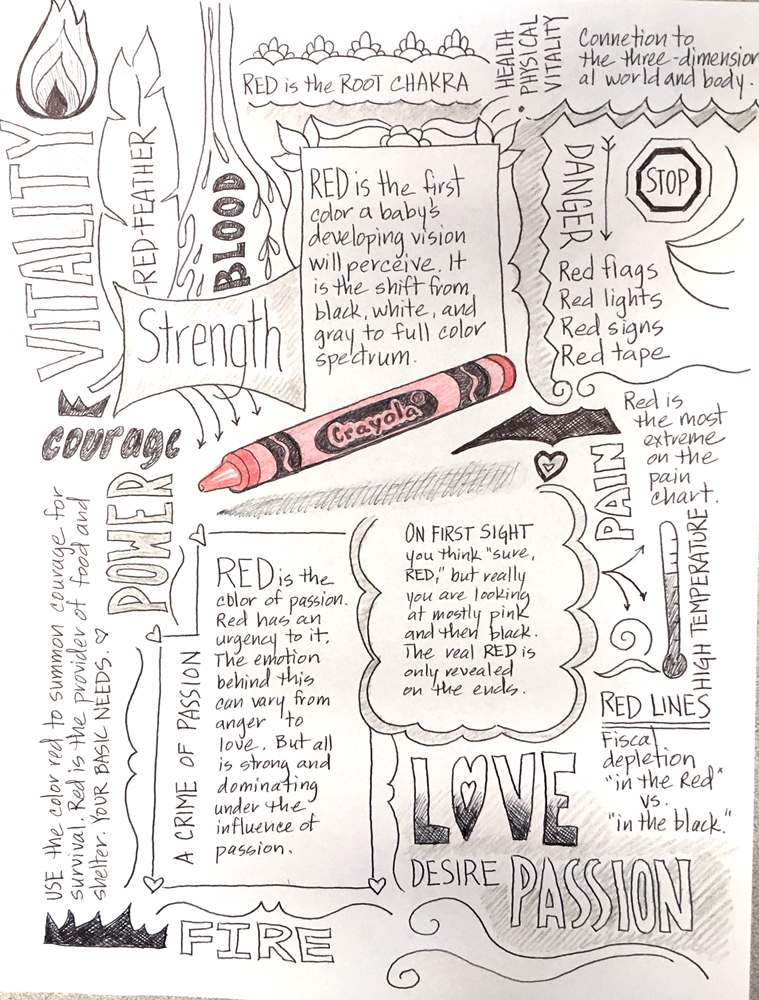 RED is the ROOT CHAKRA
HEALTH
PHYSICAL
VITALITY
Connetion to
the three-dimension
al world and body.
VITALITY
RED FEATHER
BLOOD
Strength
RED is the first
color a baby's
developing vision
will perceive. It
is the shift from
black, white, and
gray to full color
spectrum.
DANGER
STOP
Red flags
Red lights
Red signs
Red tape
courage
Crayola
POWER
USE the color red to summon courage for
survival. Red is the provider of food and
shelter. YOUR BASIC NEEDS.
A CRIME OF PASSION
RED is the
color of passion.
Red has an
urgency to it.
The emotion
behind this
can vary from
anger to
love. But all
is strong and
dominating
under the
influence of
passion.
ON FIRST SIGHT
you think "sure,
RED," but really
you are looking
at mostly pink
and then black.
The real RED is
only revealed
on the ends.
PAIN
Red is
the most
extreme
on the
pain
chart.
HIGH TEMPERATURE
RED LINES
Fiscal
depletion
"in the Red"
vs.
"in the black."
LOVE
DESIRE PASSION
FIRE